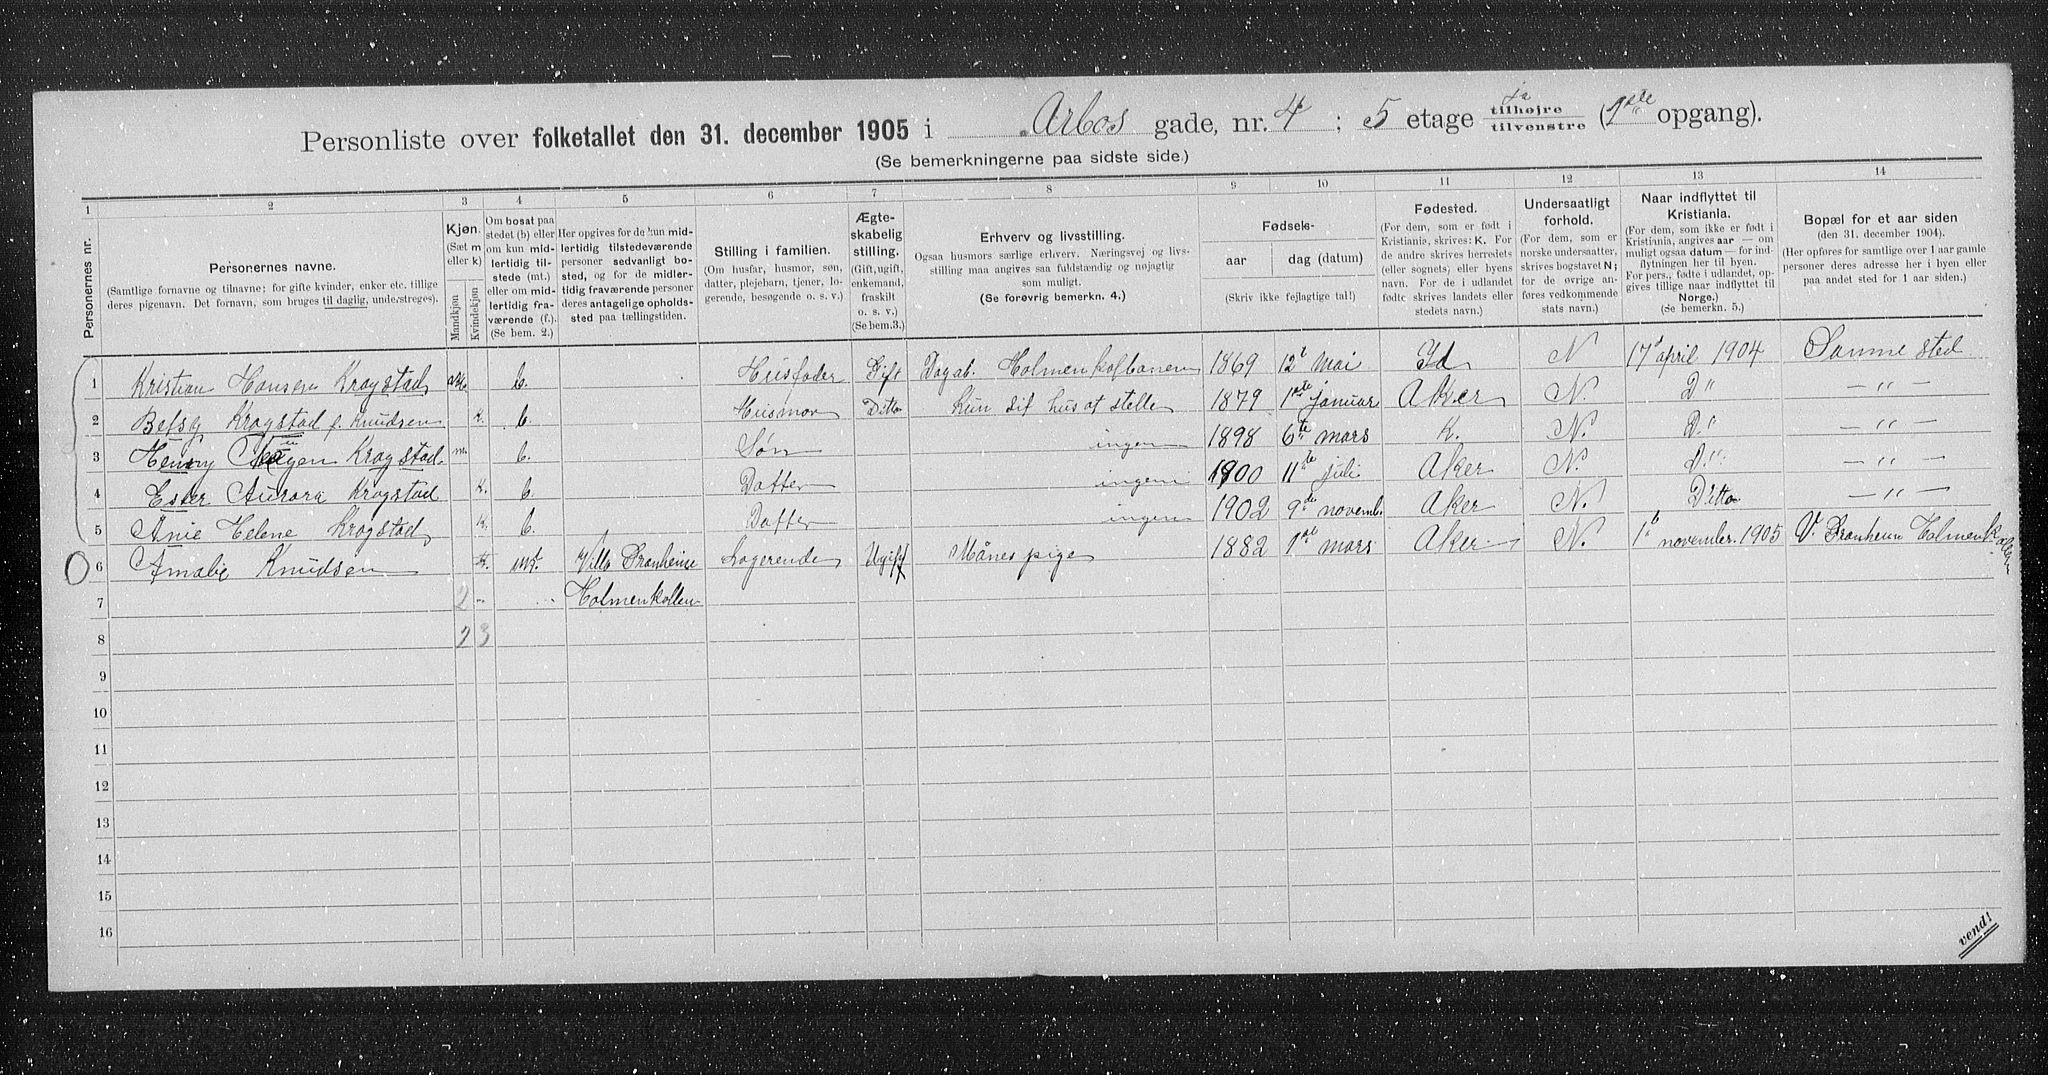 Personliste over folketallet den 31. december 1905 i Arbos gade, nr. 4 ; 5 etage tilhøjre tilvenstre (1ste opgang).
(Se bemerkningerne paa sidste side.)
1 2 3 4 5 6 7 8 9 10 11 12 13 14
Personernes nr.
Personernes navne.
(Samtlige fornavne og tilnavne; for gifte kvinder, enker etc. tillige
deres pigenavn. Det fornavn, som bruges til daglig, understreges).
Kjøn.
(Sæt m
eller k)
Mandkjøn
Kvindekjøn
Om bosat paa
stedet (b) eller
om kun mid-
lertidig til-
stede (mt.)
eller om mid-
lertidig fra-
værende (f.).
(Se bem. 2.)
Her opgives for de kun mid-
lertidig tilstedeværende
personer sedvanligt bo-
sted, og for de midler-
tidig fraværende personer
deres antagelige opholds-
sted paa tællingstiden.
Stilling i familien.
(Om husfar, husmor, søn,
datter, plejebarn, tjener, lo-
gerende, besøgende o. s. v.)
Ægte-
skabelig
stilling.
(Gift, ugift,
enkemand,
fraskilt
o. s. v.)
(Se bem. 3.)
Erhverv og livsstilling.
Ogsaa husmors særlige erhverv. Næringsvej og livs-
stilling maa angives saa fuldstændig og nøjagtig
som muligt.
(Se forøvrig bemerkn. 4.)
Fødsels-
aar
dag (datum)
(Skriv ikke fejlagtige tal!)
Fødested.
(For dem, som er født i
Kristiania, skrives: K. For
de andre skrives herredets
(eller sognets) eller byens
navn. For de i udlandet
fødte skrives landets eller
stedets navn.)
Undersaatligt
forhold.
(For dem, som er
norske undersaatter,
skrives bogstavet N;
for de øvrige an-
føres vedkommende
stats navn.)
Naar indflyttet til
Kristiania.
(For dem, som ikke er født i
Kristiania, angives aar — om
muligt ogsaa datum — for ind-
flytningen her til byen.
For pers., fødte i udlandet, op-
gives tillige naar indflyttet til
Norge.)
(Se bemerkn. 5.)
Bopæl for et aar siden
(den 31. december 1904).
(Her opføres for samtlige over 1 aar gamle
personer deres adresse her i byen eller
paa andet sted for 1 aar siden.)
1 Kristian Hansen Kragstad b. Husfader Gift Dagab. Holmenkolbanen 1869 12te Mai Id N 17de april 1904 Samme sted
2 Betsy Kragstad f. Knudsen k. b. Husmor Ditto kun sit hus at stelle 1879 1ste januar Aker N. D" — " —
3 Henry Kragstad m. b. Søn ingen 1898 6te mars K. N. D" — " —
4 Ester Aurora Kragstad k. b. Datter ingen 1900 11te juli Aker N. D" — " —
5 Anie Helene Kragstad k. b. Datter ingen 1902 9de novemb. Aker N. Ditto — " —
6 Amalie Knudsen k. mt. Villa Logerende Ugift Månespige 1882 1ste mars Aker N. 1te november 1905 V. Holmenkollen
7 2 - Holmenkollen
8 2 3
9
10
11
12
13
14
15
16
vend!